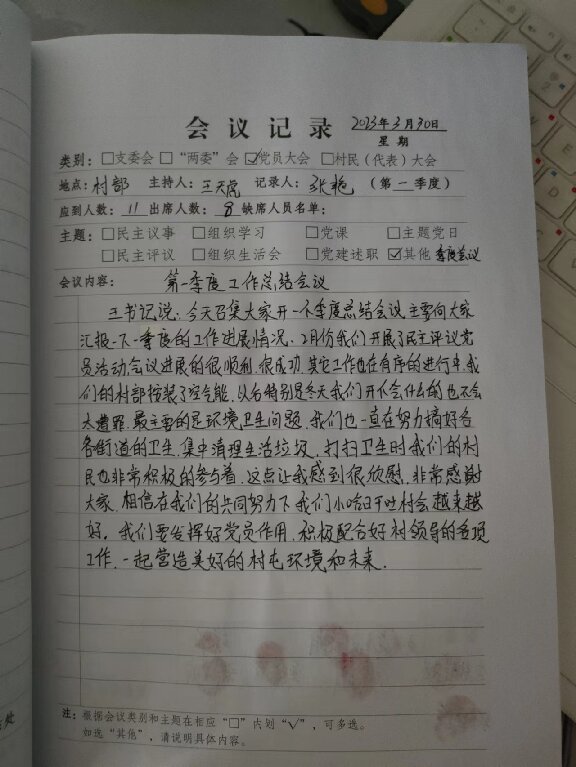 会议记录 2023年3月30日
星期
类别：□支委会 □“两委”会 ☑党员大会 □村民（代表）大会
地点：村部 主持人：王天虎 记录人：张艳 （第一季度）
应到人数：11 出席人数：8 缺席人员名单：
主题：□民主议事 □组织学习 □党课 □主题党日
□民主评议 □组织生活会 □党建述职 ☑其他 季度会议
会议内容： 第一季度工作总结会议
王书记说：今天召集大家开一个季度总结会议.主要向大家
汇报一下一季度的工作进展情况.2月份我们开展了民主评议党
员活动会议进展的很顺利.很成功.其它工作也在有序的进行中.我
们的村部按装了空气能.以后特别是冬天我们开个会什么的也不会
太遭罪.最主要的是环境卫生问题.我们也一直在努力搞好各
各街道的卫生.集中清理生活垃圾.打扫卫生时我们的村
民也非常积极的参与着.这点让我感到很欣慰.非常感谢
大家.相信在我们的共同努力下我们小哈日干吐村会越来越
好.我们要发挥好党员作用.积极配合好村领导的各项
工作.一起营造美好的村屯环境和未来.
注：根据会议类别和主题在相应“□”内划“√”，可多选。
如选“其他”，请说明具体内容。